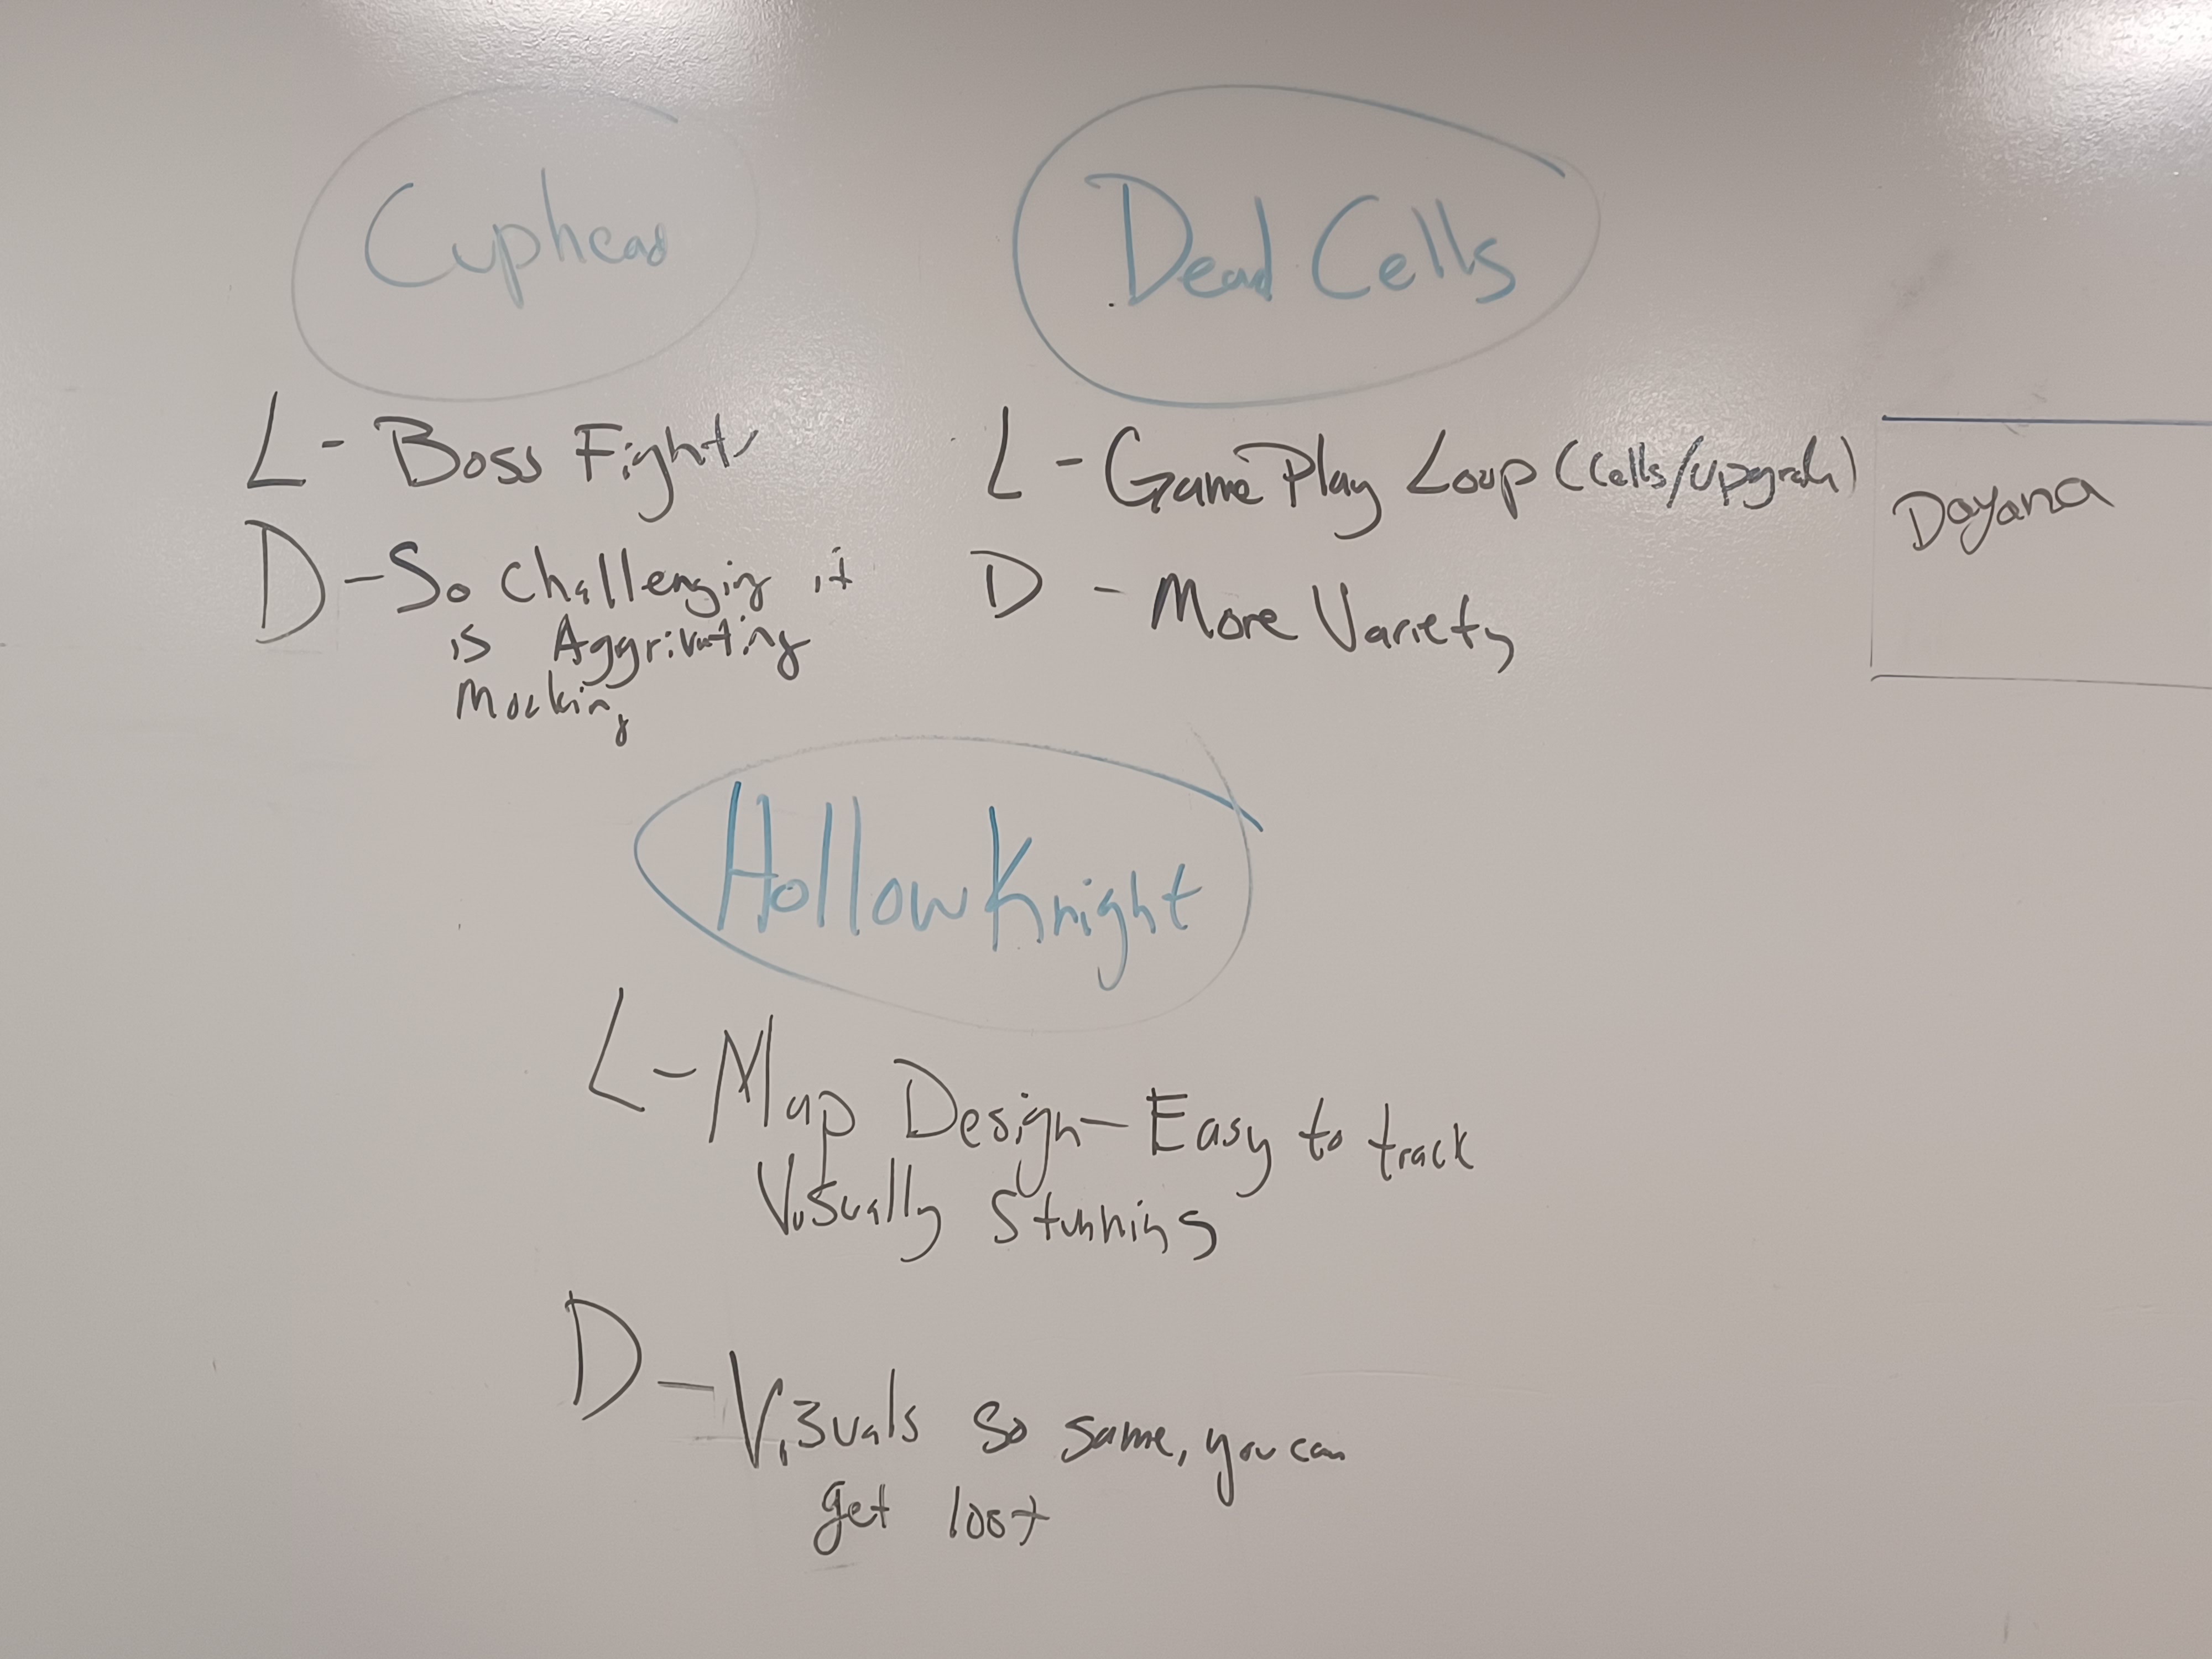 Cuphead
L - Boss Fights
D - So Challenging it
is Aggrivating
Mocking
Dead Cells
L - GamePlay Loop (Cells/Upgrads)
D - More Variety
Dayana
Hollow Knight
L - Map Design - Easy to track
Visually Stunning
D - Visuals so same, you can
get lost